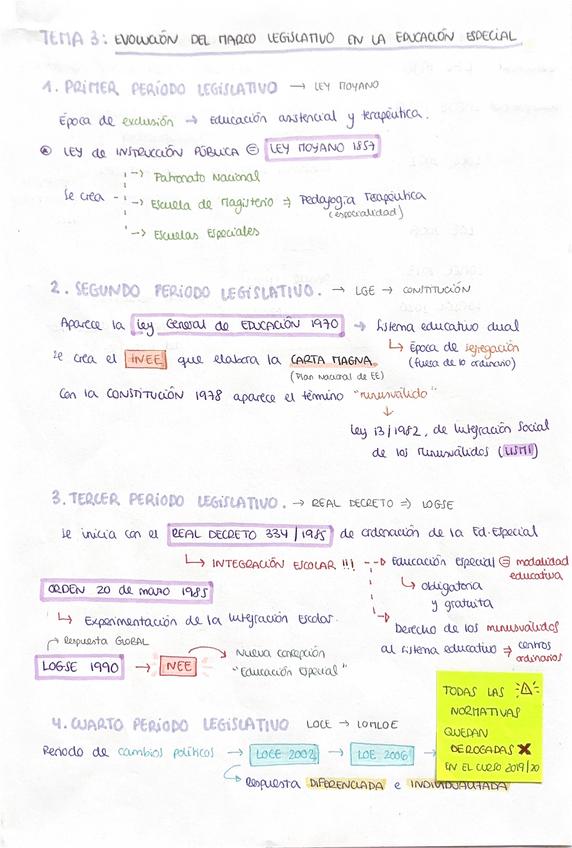 TEMA 3: EVOLUCIÓN DEL MARCO LEGISLATIVO EN LA EDUCACIÓN ESPECIAL
1. PRIMER PERÍODO LEGISLATIVO → LEY MOYANO
Época de exclusión → Educación asistencial y terapéutica.
LEY de INSTRUCCIÓN PÚBLICA = LEY MOYANO 1857
Se crea
→ Patronato Nacional
→ Escuela de Magisterio ⇒ Pedagogía Terapéutica
(especialidad)
→ Escuelas Especiales
2. SEGUNDO PERÍODO LEGISLATIVO. → LGE → CONSTITUCIÓN
Aparece la Ley General de EDUCACIÓN 1970 → Sistema educativo dual
↳ Época de segregación
(fuera de lo ordinario)
Se crea el INEE que elabora la CARTA MAGNA.
(Plan Nacional de EE)
Con la CONSTITUCIÓN 1978 aparece el término "minusválido"
↓
Ley 13/1982, de Integración Social
de los Minusválidos (LISMI)
3. TERCER PERÍODO LEGISLATIVO. → REAL DECRETO ⇒ LOGSE
Se inicia con el REAL DECRETO 334/1985 de ordenación de la Ed. Especial
↳ INTEGRACIÓN ESCOLAR !!!
→ Educación Especial = modalidad
educativa
↳ obligatoria
y gratuita
→ Derecho de los minusválidos
al sistema educativo ⇒ centros
ordinarios
ORDEN 20 de marzo 1985
↳ Experimentación de la Integración Escolar.
Respuesta GLOBAL
LOGSE 1990 → NEE
Nueva concepción
"Educación Especial"
4. CUARTO PERÍODO LEGISLATIVO LOCE → LOMLOE
Periodo de cambios políticos → LOCE 2002 → LOE 2006 →
↳ Respuesta DIFERENCIADA e INDIVIDUALIZADA
TODAS LAS
NORMATIVAS
QUEDAN
DEROGADAS ✗
EN EL CURSO 2019/20